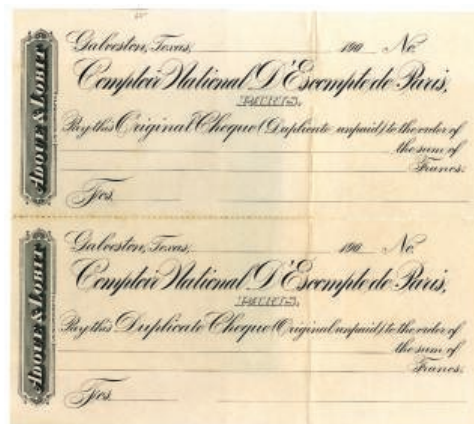 Galveston, Texas, 190 No.
Comptoir National D'Escompte de Paris,
PARIS.
Pay this Original Cheque (Duplicate unpaid) to the order of
the sum of
Francs.
Fcs.
ADOUE & LOBIT
Galveston, Texas, 190 No.
Comptoir National D'Escompte de Paris,
PARIS.
Pay this Duplicate Cheque (Original unpaid) to the order of
the sum of
Francs.
Fcs.
ADOUE & LOBIT